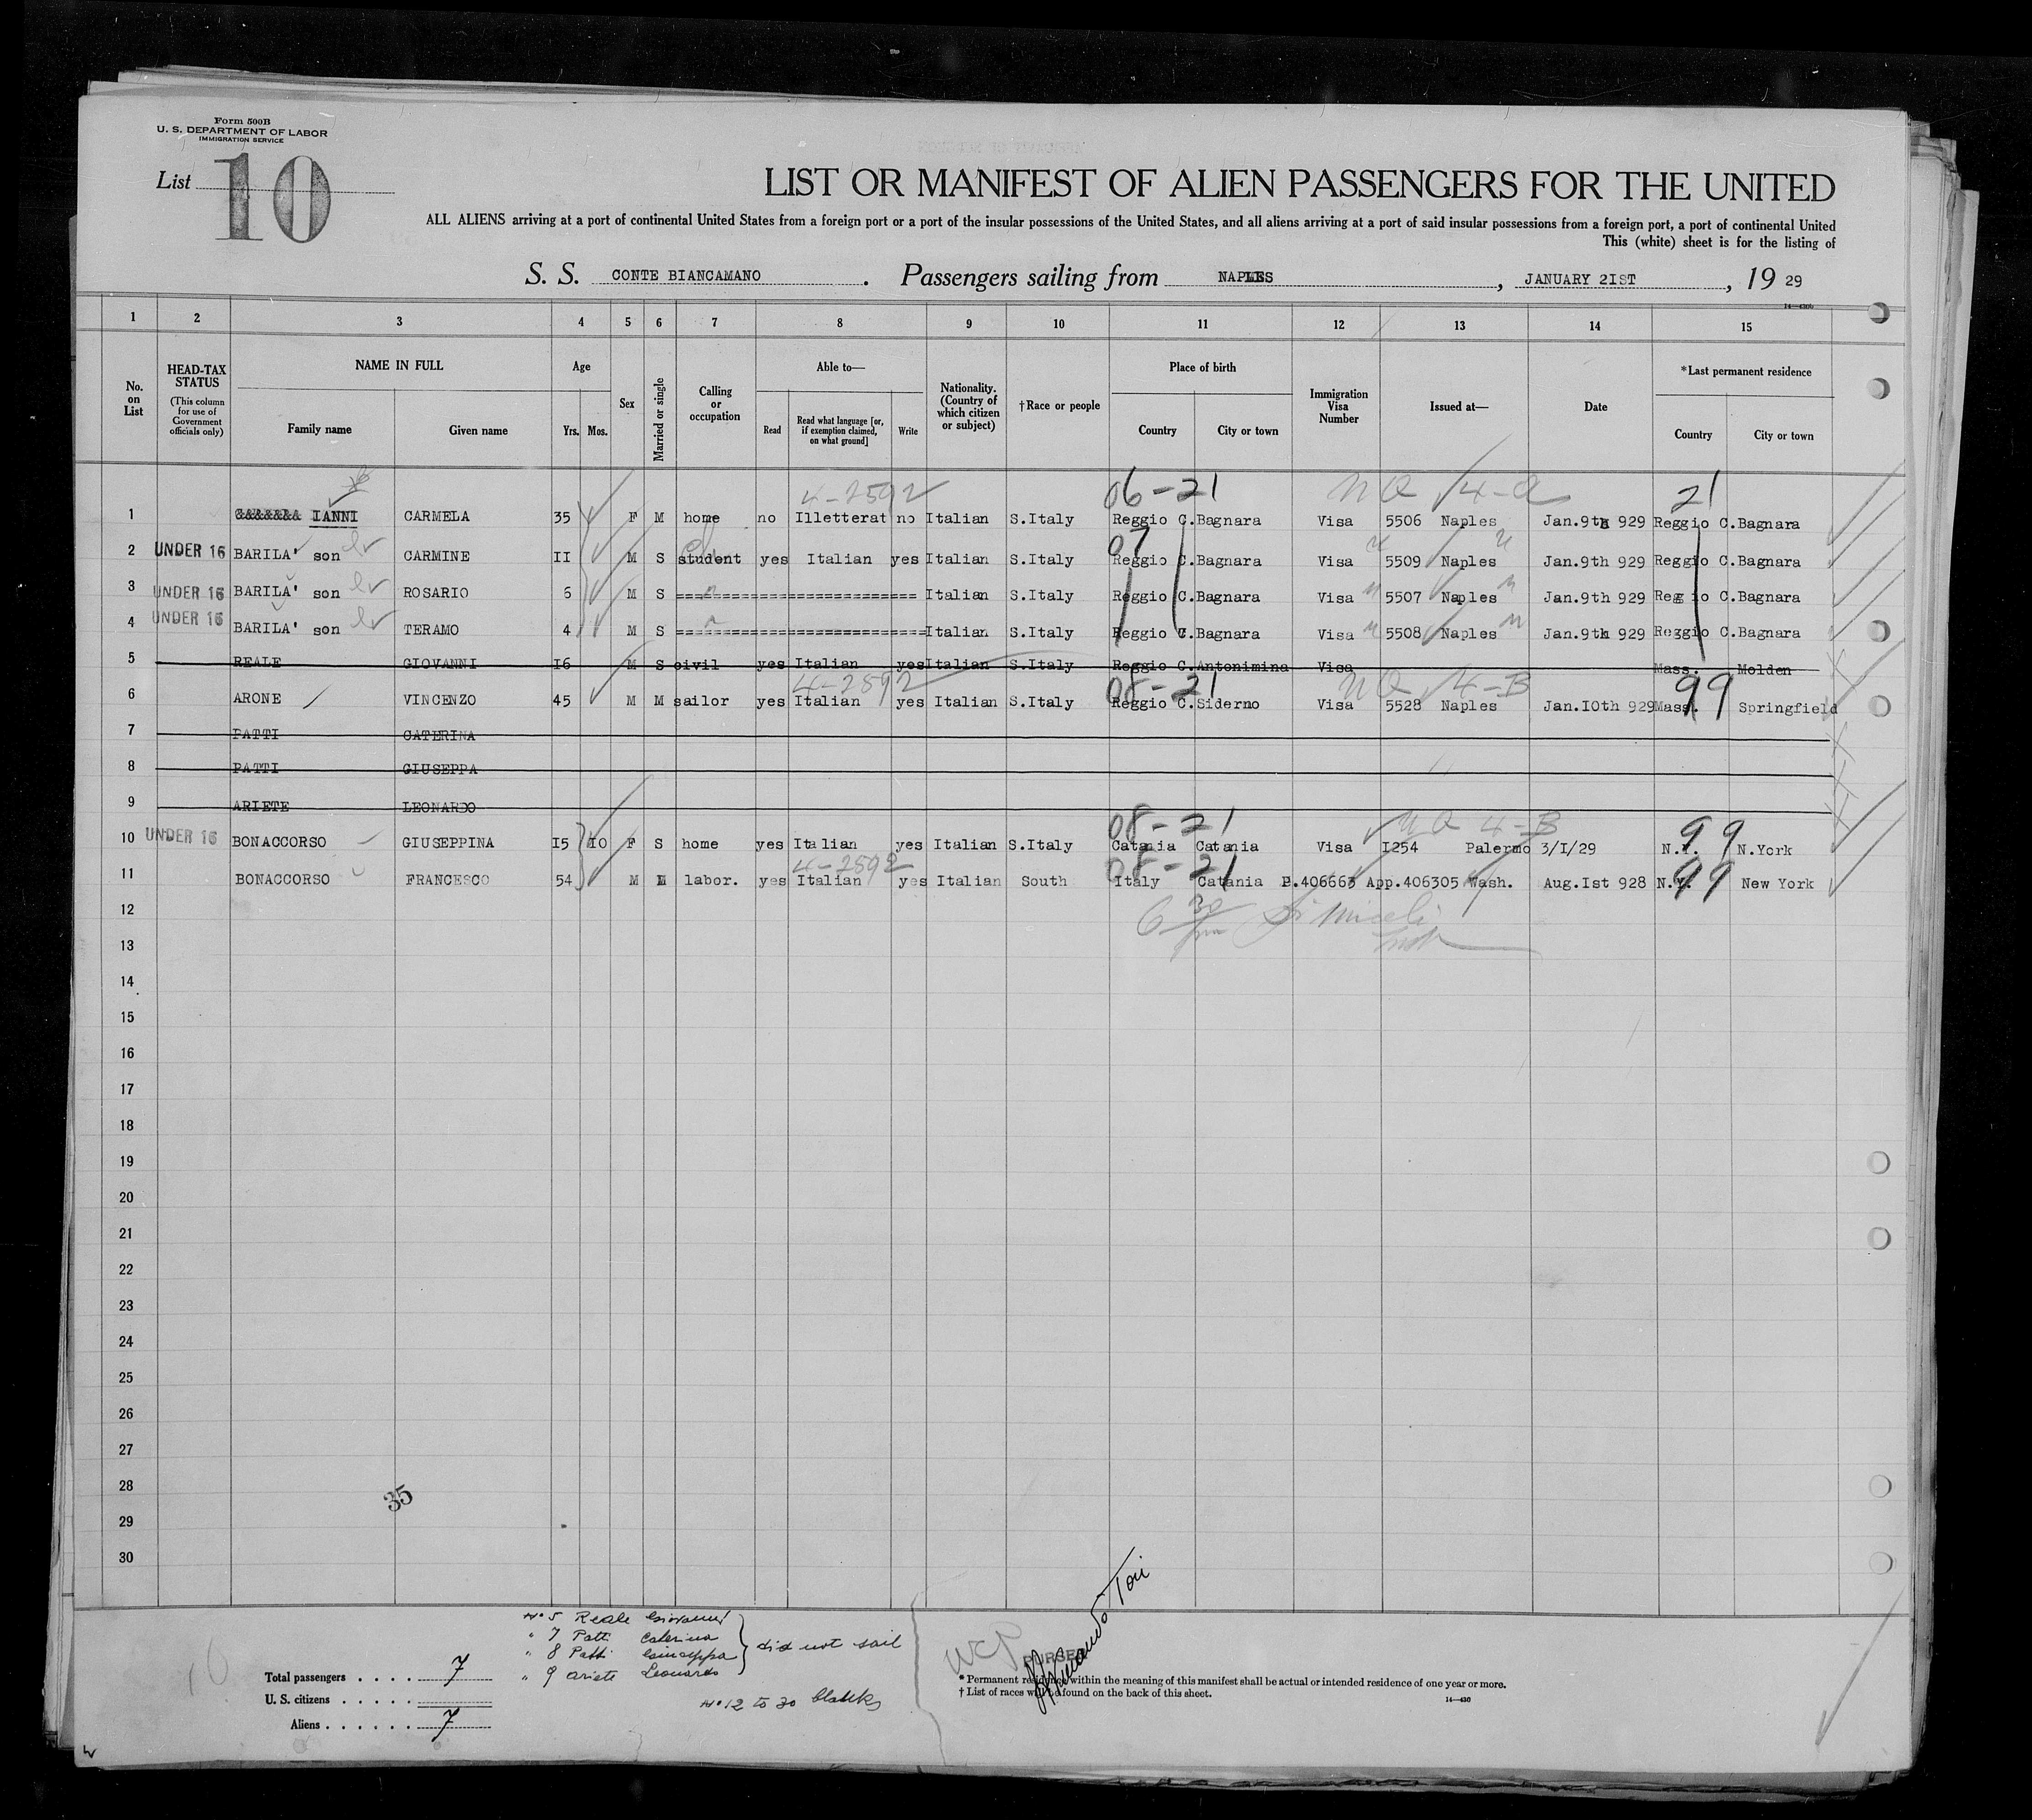 Form 500B
U. S. DEPARTMENT OF LABOR
IMMIGRATION SERVICE
List 10
LIST OR MANIFEST OF ALIEN PASSENGERS FOR THE UNITED
ALL ALIENS arriving at a port of continental United States from a foreign port or a port of the insular possessions of the United States, and all aliens arriving at a port of said insular possessions from a foreign port, a port of continental United
This (white) sheet is for the listing of
S. S. CONTE BIANCAMANO . Passengers sailing from NAPLES , JANUARY 2IST , 19 29
14—430b
1 2 3 4 5 6 7 8 9 10 11 12 13 14 15
No. on List
HEAD-TAX STATUS
(This column for use of Government officials only)
NAME IN FULL
Family name Given name
Age
Yrs. Mos.
Sex
Married or single
Calling or occupation
Able to—
Read
Read what language [or, if exemption claimed, on what ground]
Write
Nationality. (Country of which citizen or subject)
†Race or people
Place of birth
Country City or town
Immigration Visa Number
Issued at—
Date
*Last permanent residence
Country City or town
4-2592 06-21 NQ 4-a 21
1 IANNI CARMELA 35 F M home no Illetterat no Italian S.Italy Reggio C.Bagnara Visa 5506 Naples Jan.9th 929 Reggio C.Bagnara
2 UNDER 16 BARILA' son CARMINE II M S student yes Italian yes Italian S.Italy 07 Reggio C.Bagnara Visa 5509 Naples Jan.9th 929 Reggio C.Bagnara
3 UNDER 16 BARILA' son ROSARIO 6 M S ======================== Italian S.Italy Reggio C.Bagnara Visa 5507 Naples Jan.9th 929 Reggio C.Bagnara
4 UNDER 16 BARILA' son TERAMO 4 M S ======================== Italian S.Italy Reggio C.Bagnara Visa 5508 Naples Jan.9th 929 Reggio C.Bagnara
5 REALE GIOVANNI I6 M S civil yes Italian yes Italian S.Italy Reggio C.Antonimina Visa Mass. Molden
4-2592 08-21 NQ 4-B 99
6 ARONE VINCENZO 45 M M sailor yes Italian yes Italian S.Italy Reggio C.Siderno Visa 5528 Naples Jan.IOth 929 Mass. Springfield
7 PATTI CATERINA
8 PATTI GIUSEPPA
9 ARIETE LEONARDO
08-21 NQ 4-B 99
10 UNDER 16 BONACCORSO GIUSEPPINA I5 IO F S home yes Italian yes Italian S.Italy Catania Catania Visa I254 Palermo 3/I/29 N.Y. N.York
4-2592 08-21 99
11 BONACCORSO FRANCESCO 54 M M labor. yes Italian yes Italian South Italy Catania P.406663 App.406305 Wash. Aug.Ist 928 N.Y. New York
12
6 30/pm
13
14
15
16
17
18
19
20
21
22
23
24
25
26
27
28
35
29
30
No 5 Reale Giovanni
" 7 Patti Caterina
" 8 Patti Giuseppa
" 9 Ariete Leonardo
did not sail
No 12 to 30 blanks
Total passengers . . . . 7
U. S. citizens . . . . .
Aliens . . . . . . 7
PURSER
* Permanent residence within the meaning of this manifest shall be actual or intended residence of one year or more.
† List of races will be found on the back of this sheet.
14—430